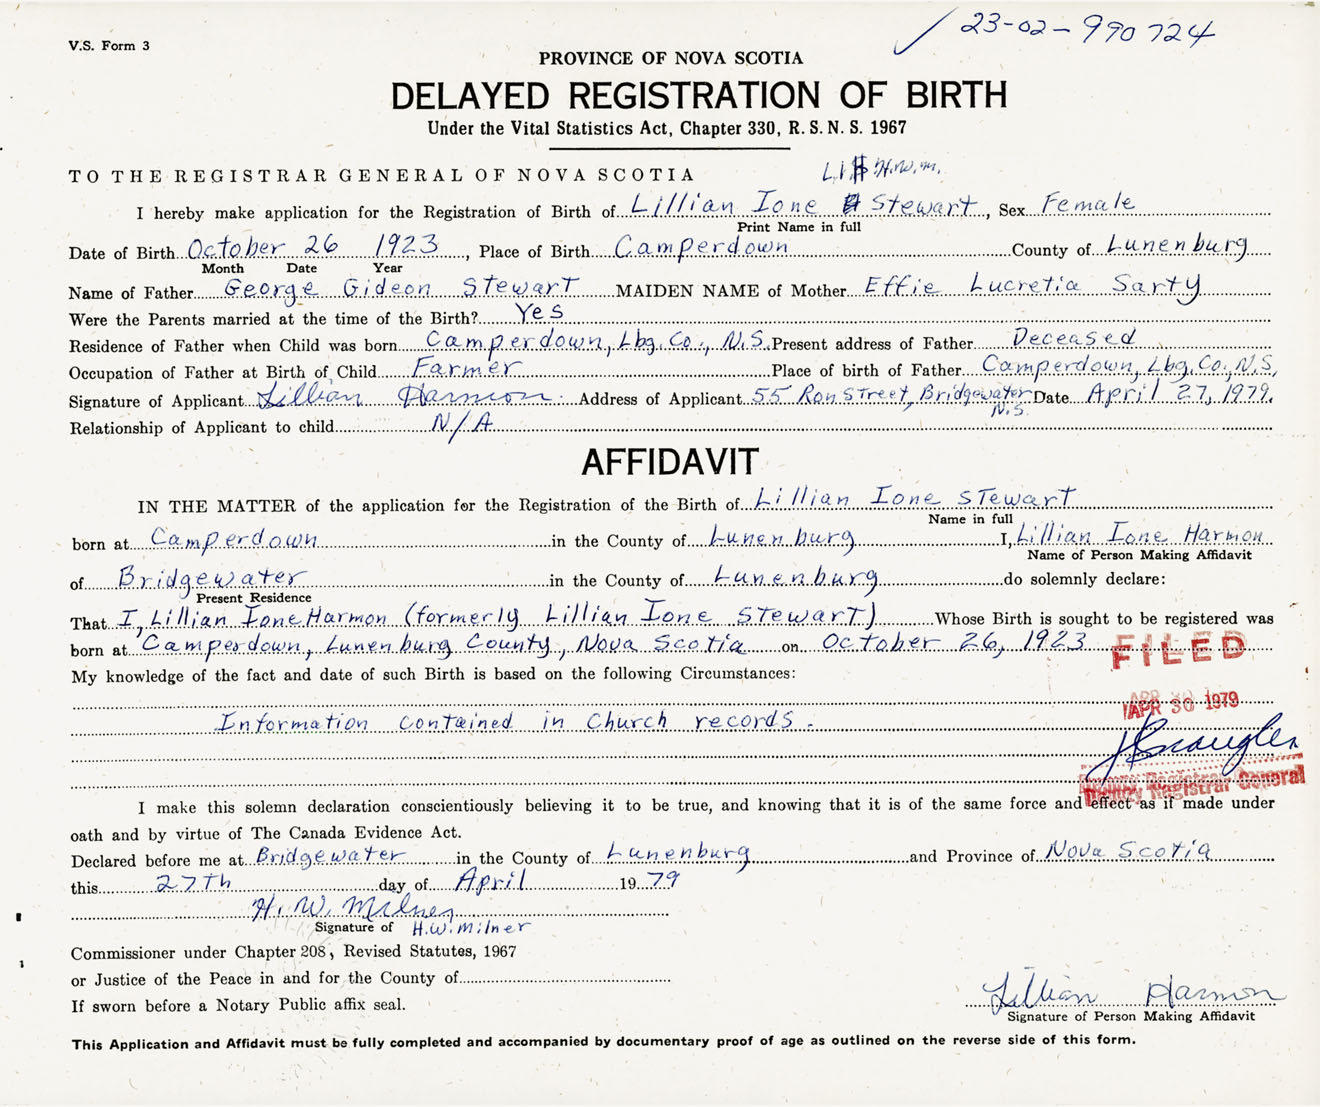 V.S. Form 3
✓ 23-02-990724
PROVINCE OF NOVA SCOTIA
DELAYED REGISTRATION OF BIRTH
Under the Vital Statistics Act, Chapter 330, R. S. N. S. 1967
TO THE REGISTRAR GENERAL OF NOVA SCOTIA
H.W.M.
I hereby make application for the Registration of Birth of Lillian Ione Stewart, Sex Female
Print Name in full
Date of Birth October 26 1923, Place of Birth Camperdown County of Lunenburg
Month Date Year
Name of Father George Gideon Stewart MAIDEN NAME of Mother Effie Lucretia Sarty
Were the Parents married at the time of the Birth? Yes
Residence of Father when Child was born Camperdown, Lbg. Co., N.S. Present address of Father Deceased
Occupation of Father at Birth of Child Farmer Place of birth of Father Camperdown, Lbg. Co., N.S.
Signature of Applicant Lillian Harmon Address of Applicant 55 Ron Street, Bridgewater N.S. Date April 27, 1979.
Relationship of Applicant to child N/A
AFFIDAVIT
IN THE MATTER of the application for the Registration of the Birth of Lillian Ione Stewart
Name in full
born at Camperdown in the County of Lunenburg I, Lillian Ione Harmon
Name of Person Making Affidavit
of Bridgewater in the County of Lunenburg do solemnly declare:
Present Residence
That I, Lillian Ione Harmon (formerly Lillian Ione Stewart) Whose Birth is sought to be registered was
born at Camperdown, Lunenburg County, Nova Scotia on October 26, 1923
FILED
My knowledge of the fact and date of such Birth is based on the following Circumstances:
APR 30 1979
Information contained in Church records.
Deputy Registrar General
I make this solemn declaration conscientiously believing it to be true, and knowing that it is of the same force and effect as if made under
oath and by virtue of The Canada Evidence Act.
Declared before me at Bridgewater in the County of Lunenburg and Province of Nova Scotia
this 27th day of April 1979
H. W. Milner
Signature of H.W. Milner
Commissioner under Chapter 208, Revised Statutes, 1967
or Justice of the Peace in and for the County of
If sworn before a Notary Public affix seal.
Lillian Harmon
Signature of Person Making Affidavit
This Application and Affidavit must be fully completed and accompanied by documentary proof of age as outlined on the reverse side of this form.